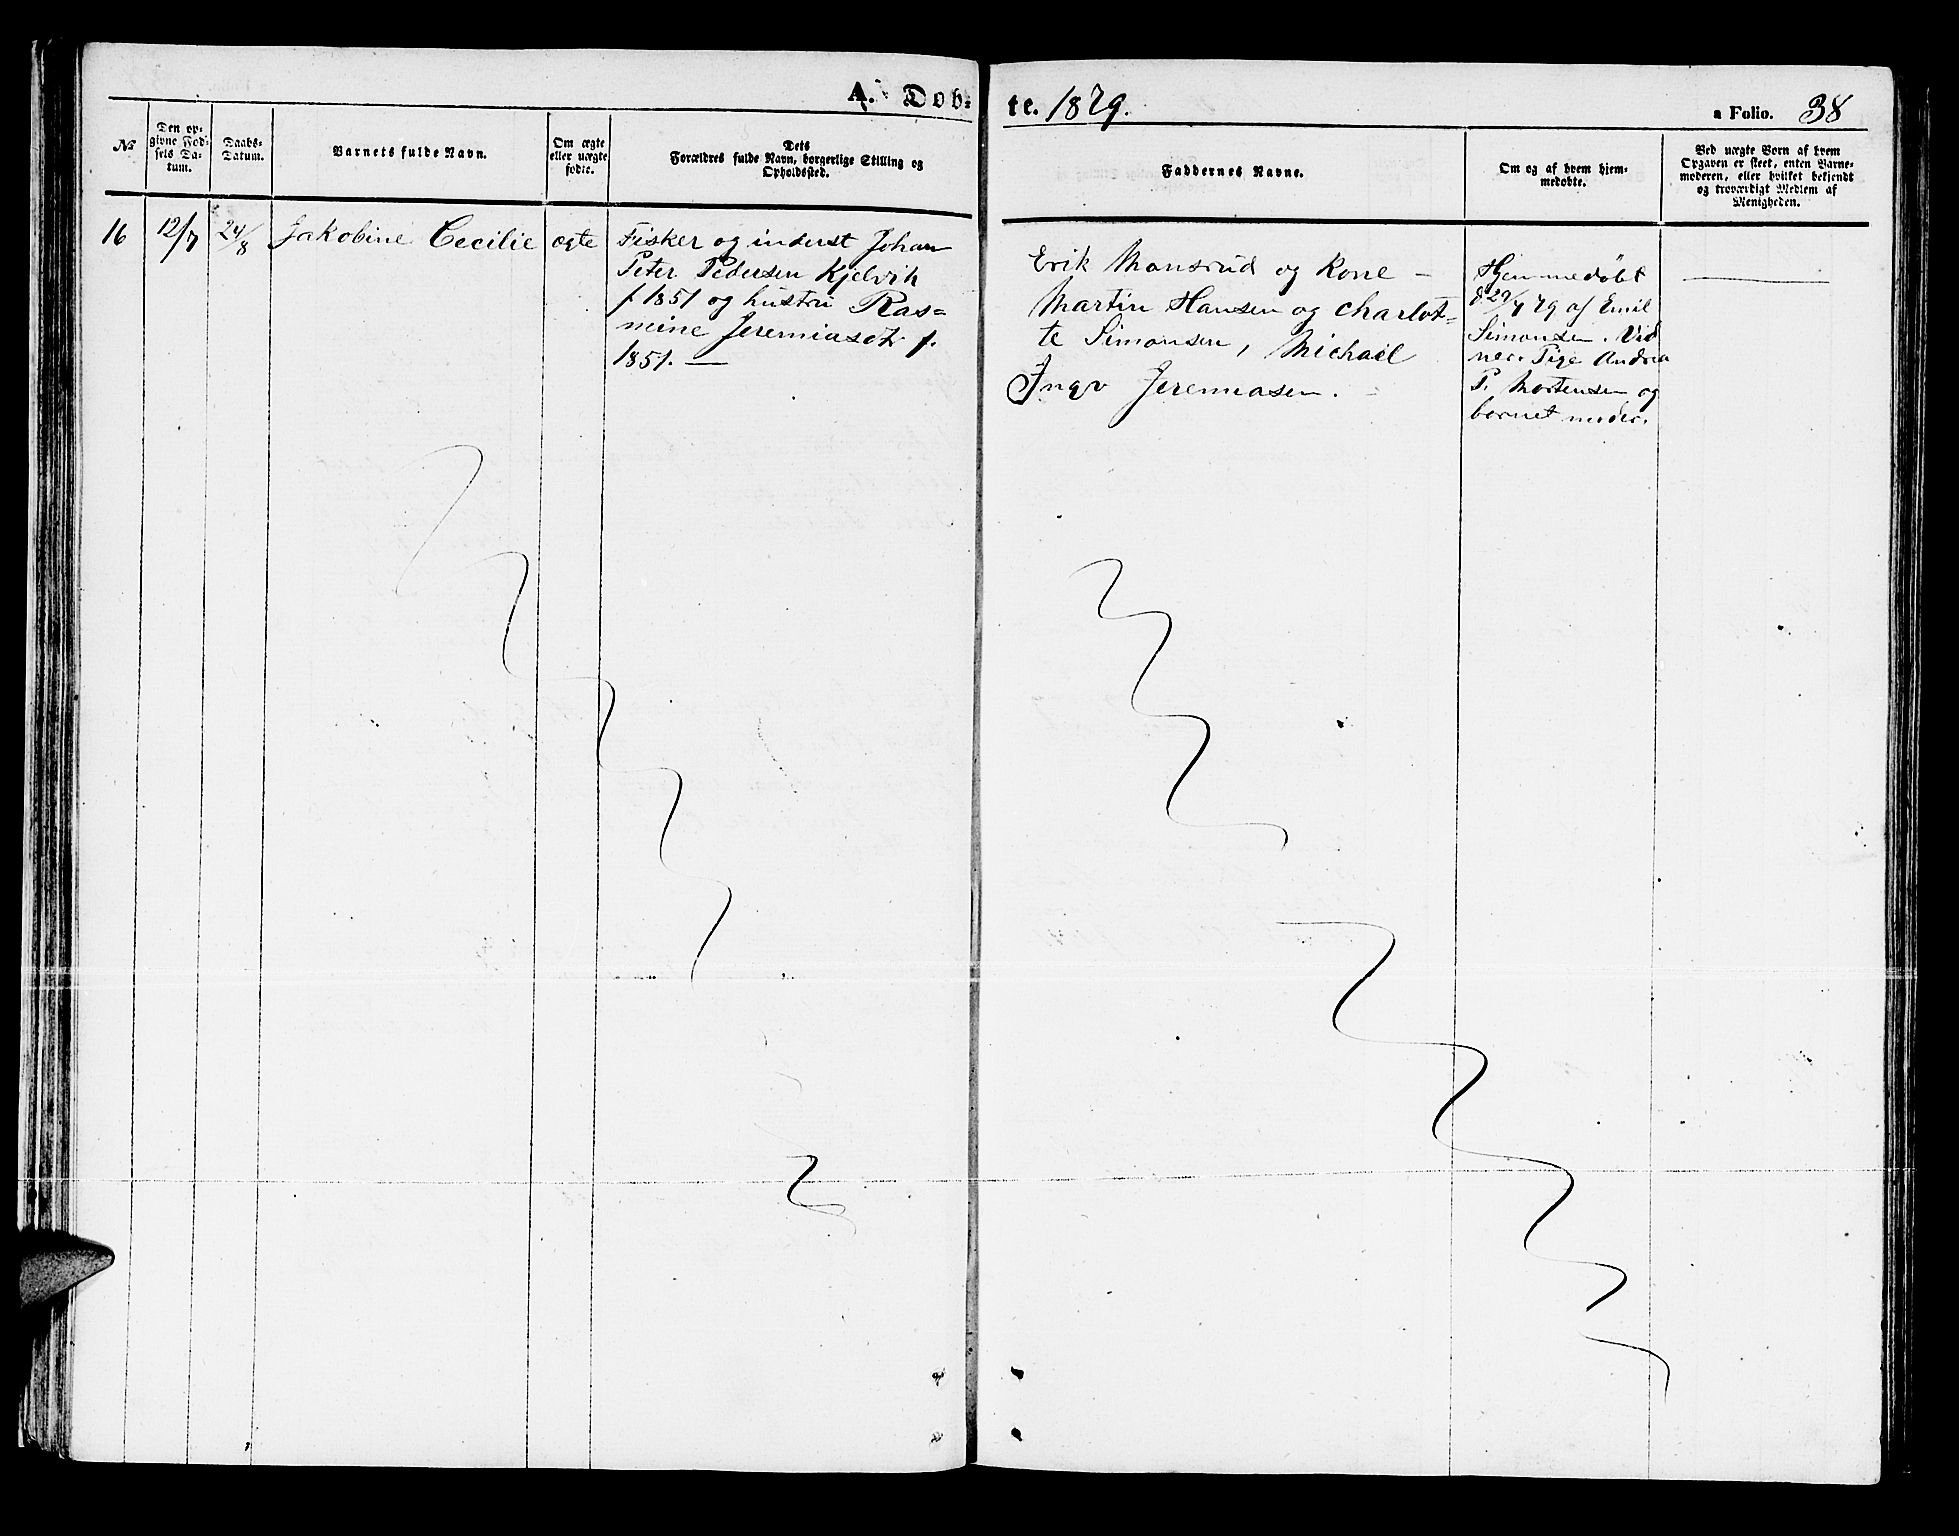 A. Døb-
te. 1879.
a Folio. 38
№
Den op-
givne Fød-
sels Da-
tum.
Daabs-
Datum.
Barnets fulde Navn.
Om ægte
eller uægte
fødte.
Dets
Forældres fulde Navn, borgerlige Stilling og
Opholdssted.
Faddernes Navne.
Om og af hvem hjem-
medøbte.
Ved uægte Børn af hvem
Opgaven er skeet, enten Barne-
moderen, eller hvilket bekjendt
og troværdigt Medlem af
Menigheden.
16
12/7
24/8
Jakobine Cecilie
ægte
Fisker og inderst Johan
Peter Pedersen Kjelvik
f. 1851 og hustru Ras=
mine Jeremiasdtr f.
1851. —
Erik Monsrud og Kone –
Martin Hansen og Charlot=
te Simonsen, Michael
Ingv Jeremiasen.
Hjemmedøbt
d. 29/7 79 af Emil
Simonsen. Vid
ner. Pige Andrea
P. Mortensen og
barnet moder.